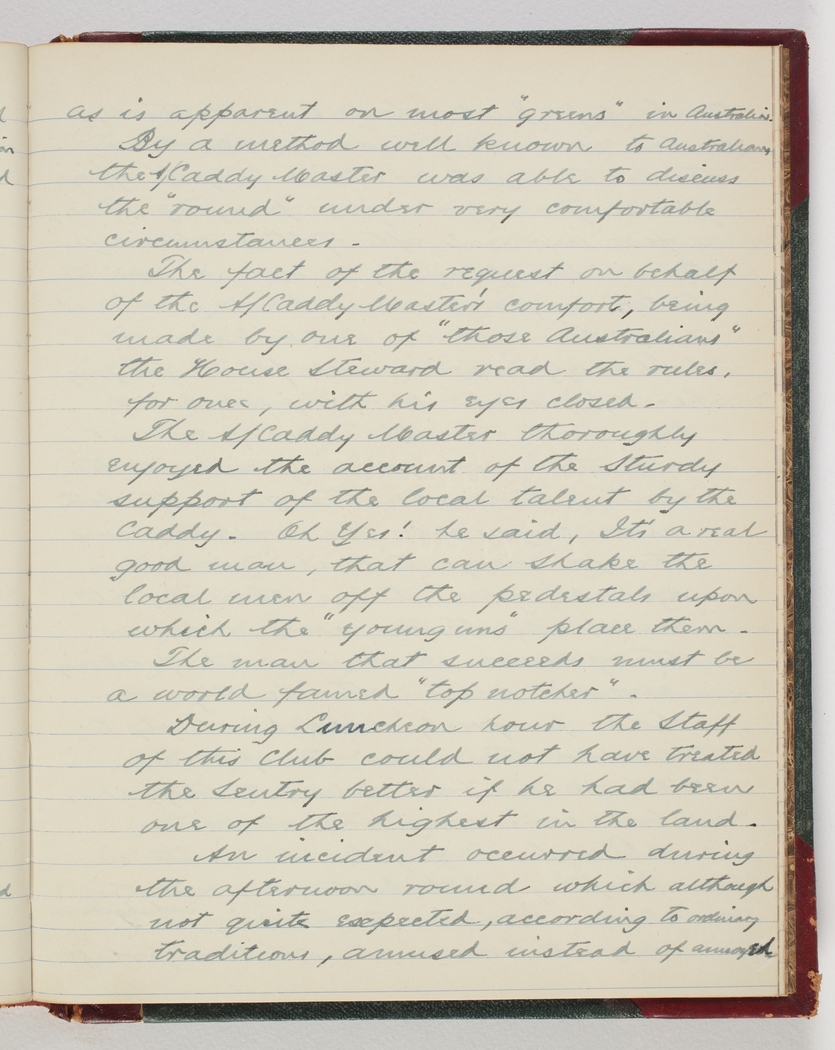 as is apparent on most "greens" in Australia.
By a method well known to Australians,
the S/Caddy Master was able to discuss
the "round" under very comfortable
circumstances.
The fact of the request on behalf
of the S/Caddy Master's comfort, being
made by one of "those Australians"
the House Steward read the rules,
for once, with his eyes closed.
The S/Caddy Master thoroughly
enjoyed the account of the Sturdy
support of the local talent by the
Caddy. Oh Yes! he said, It's a real
good man, that can shake the
local men off the pedestals upon
which the "young uns" place them.
The man that succeeds must be
a world famed "top notcher".
During Luncheon hour the Staff
of this Club could not have treated
the Sentry better if he had been
one of the highest in the land.
An incident occurred during
the afternoon round which although
not quite expected, according to ordinary
traditions, amused instead of annoyed